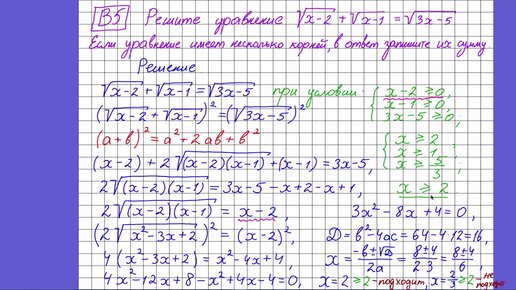 B5 Решите уравнение √(x-2) + √(x-1) = √(3x-5)
Если уравнение имеет несколько корней, в ответ запишите их сумму.
Решение
√(x-2) + √(x-1) = √(3x-5) при условии: { x-2 ≥ 0,
x-1 ≥ 0,
3x-5 ≥ 0;
(√(x-2) + √(x-1))² = (√(3x-5))²
(a+b)² = a² + 2ab + b²
{ x ≥ 2
x ≥ 1,
x ≥ 5/3;
x ≥ 2
(x-2) + 2√((x-2)(x-1)) + (x-1) = 3x-5,
2√((x-2)(x-1)) = 3x-5-x+2-x+1,
2√((x-2)(x-1)) = x-2,
(2√(x²-3x+2))² = (x-2)²,
4(x²-3x+2) = x²-4x+4,
4x²-12x+8-x²+4x-4=0,
3x²-8x+4=0,
D=b²-4ac=64-4·12=16,
x = (-b±√D)/2a = (8±4)/2·3 = (8±4)/6,
x=2≥2-подходит, x=2/3≥2-не подходит